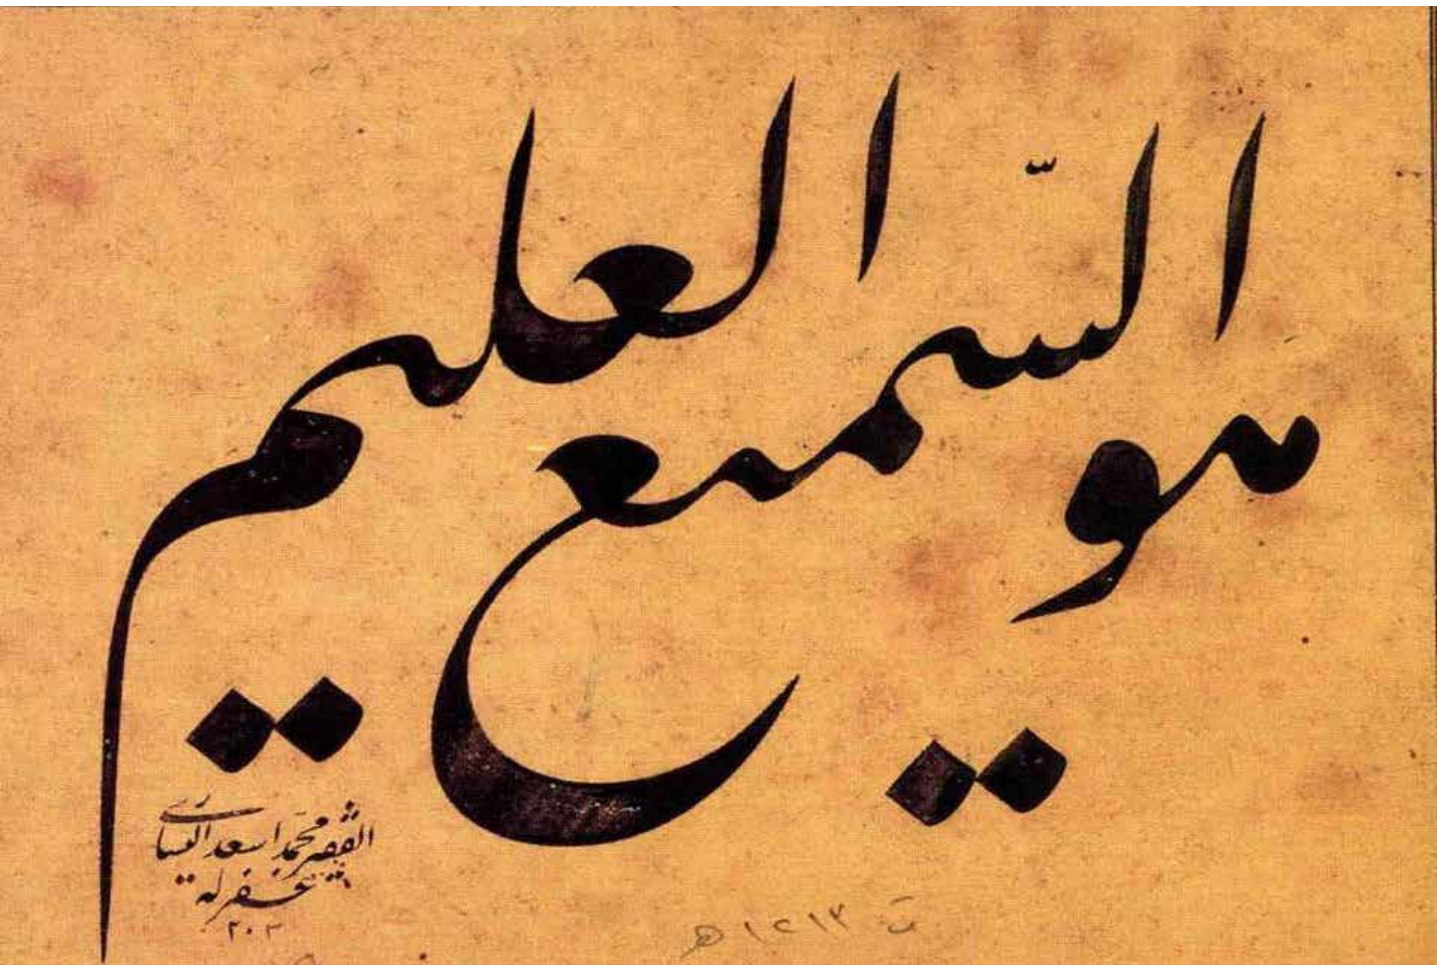 هو السّميع العليم
الفقير محمد اسعد اليساري
غفر له
ت ١٢١٣ هـ